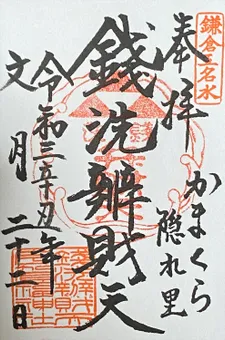 鎌倉五名水
奉拝
かまくら
隠れ里
錢洗辨財天
令和三辛丑年
文月
二十二日